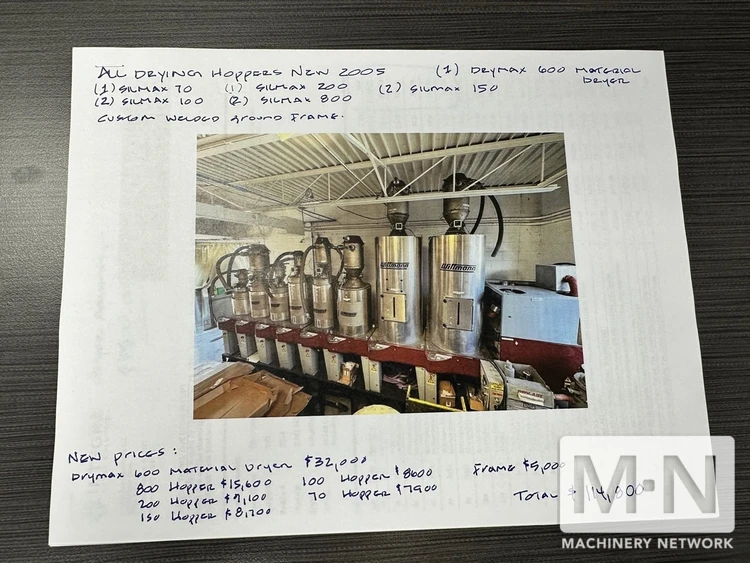 All Drying Hoppers New 2005 (1) Drymax 600 Material Dryer
(1) Silmax 70 (1) Silmax 200 (2) Silmax 150
(2) Silmax 100 (2) Silmax 800
Custom Welded Ground Frame.
Wittmann
Wittmann
New Prices:
Drymax 600 Material Dryer $32,000
800 Hopper $15,600 100 Hopper $8600 Frame $5,000
200 Hopper $9,100 70 Hopper $7900 Total $114,800
150 Hopper $8,700
M·N
MACHINERY NETWORK